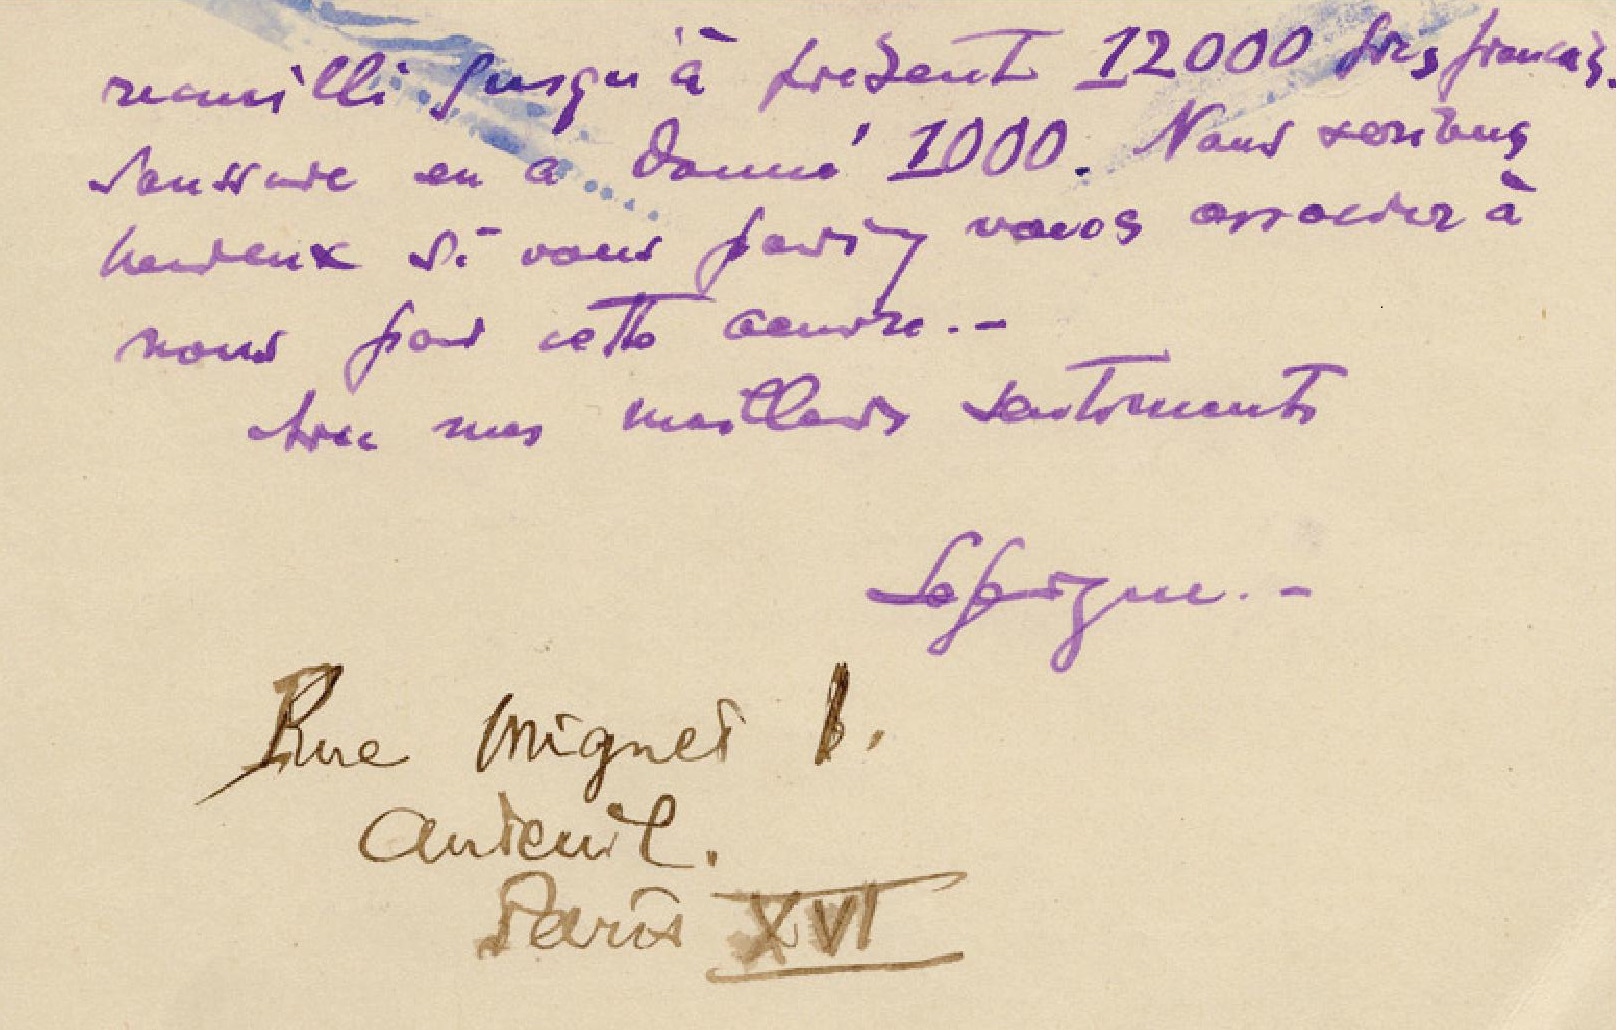 recueilli jusqu'à présent 12000 frcs français.
Saussure en a donné 1000. Nous serions
heureux si vous pouviez vous associer à
nous pour cette œuvre.-
Avec mes meilleurs sentiments
Rue Mignet
Auteuil.
Paris XVI